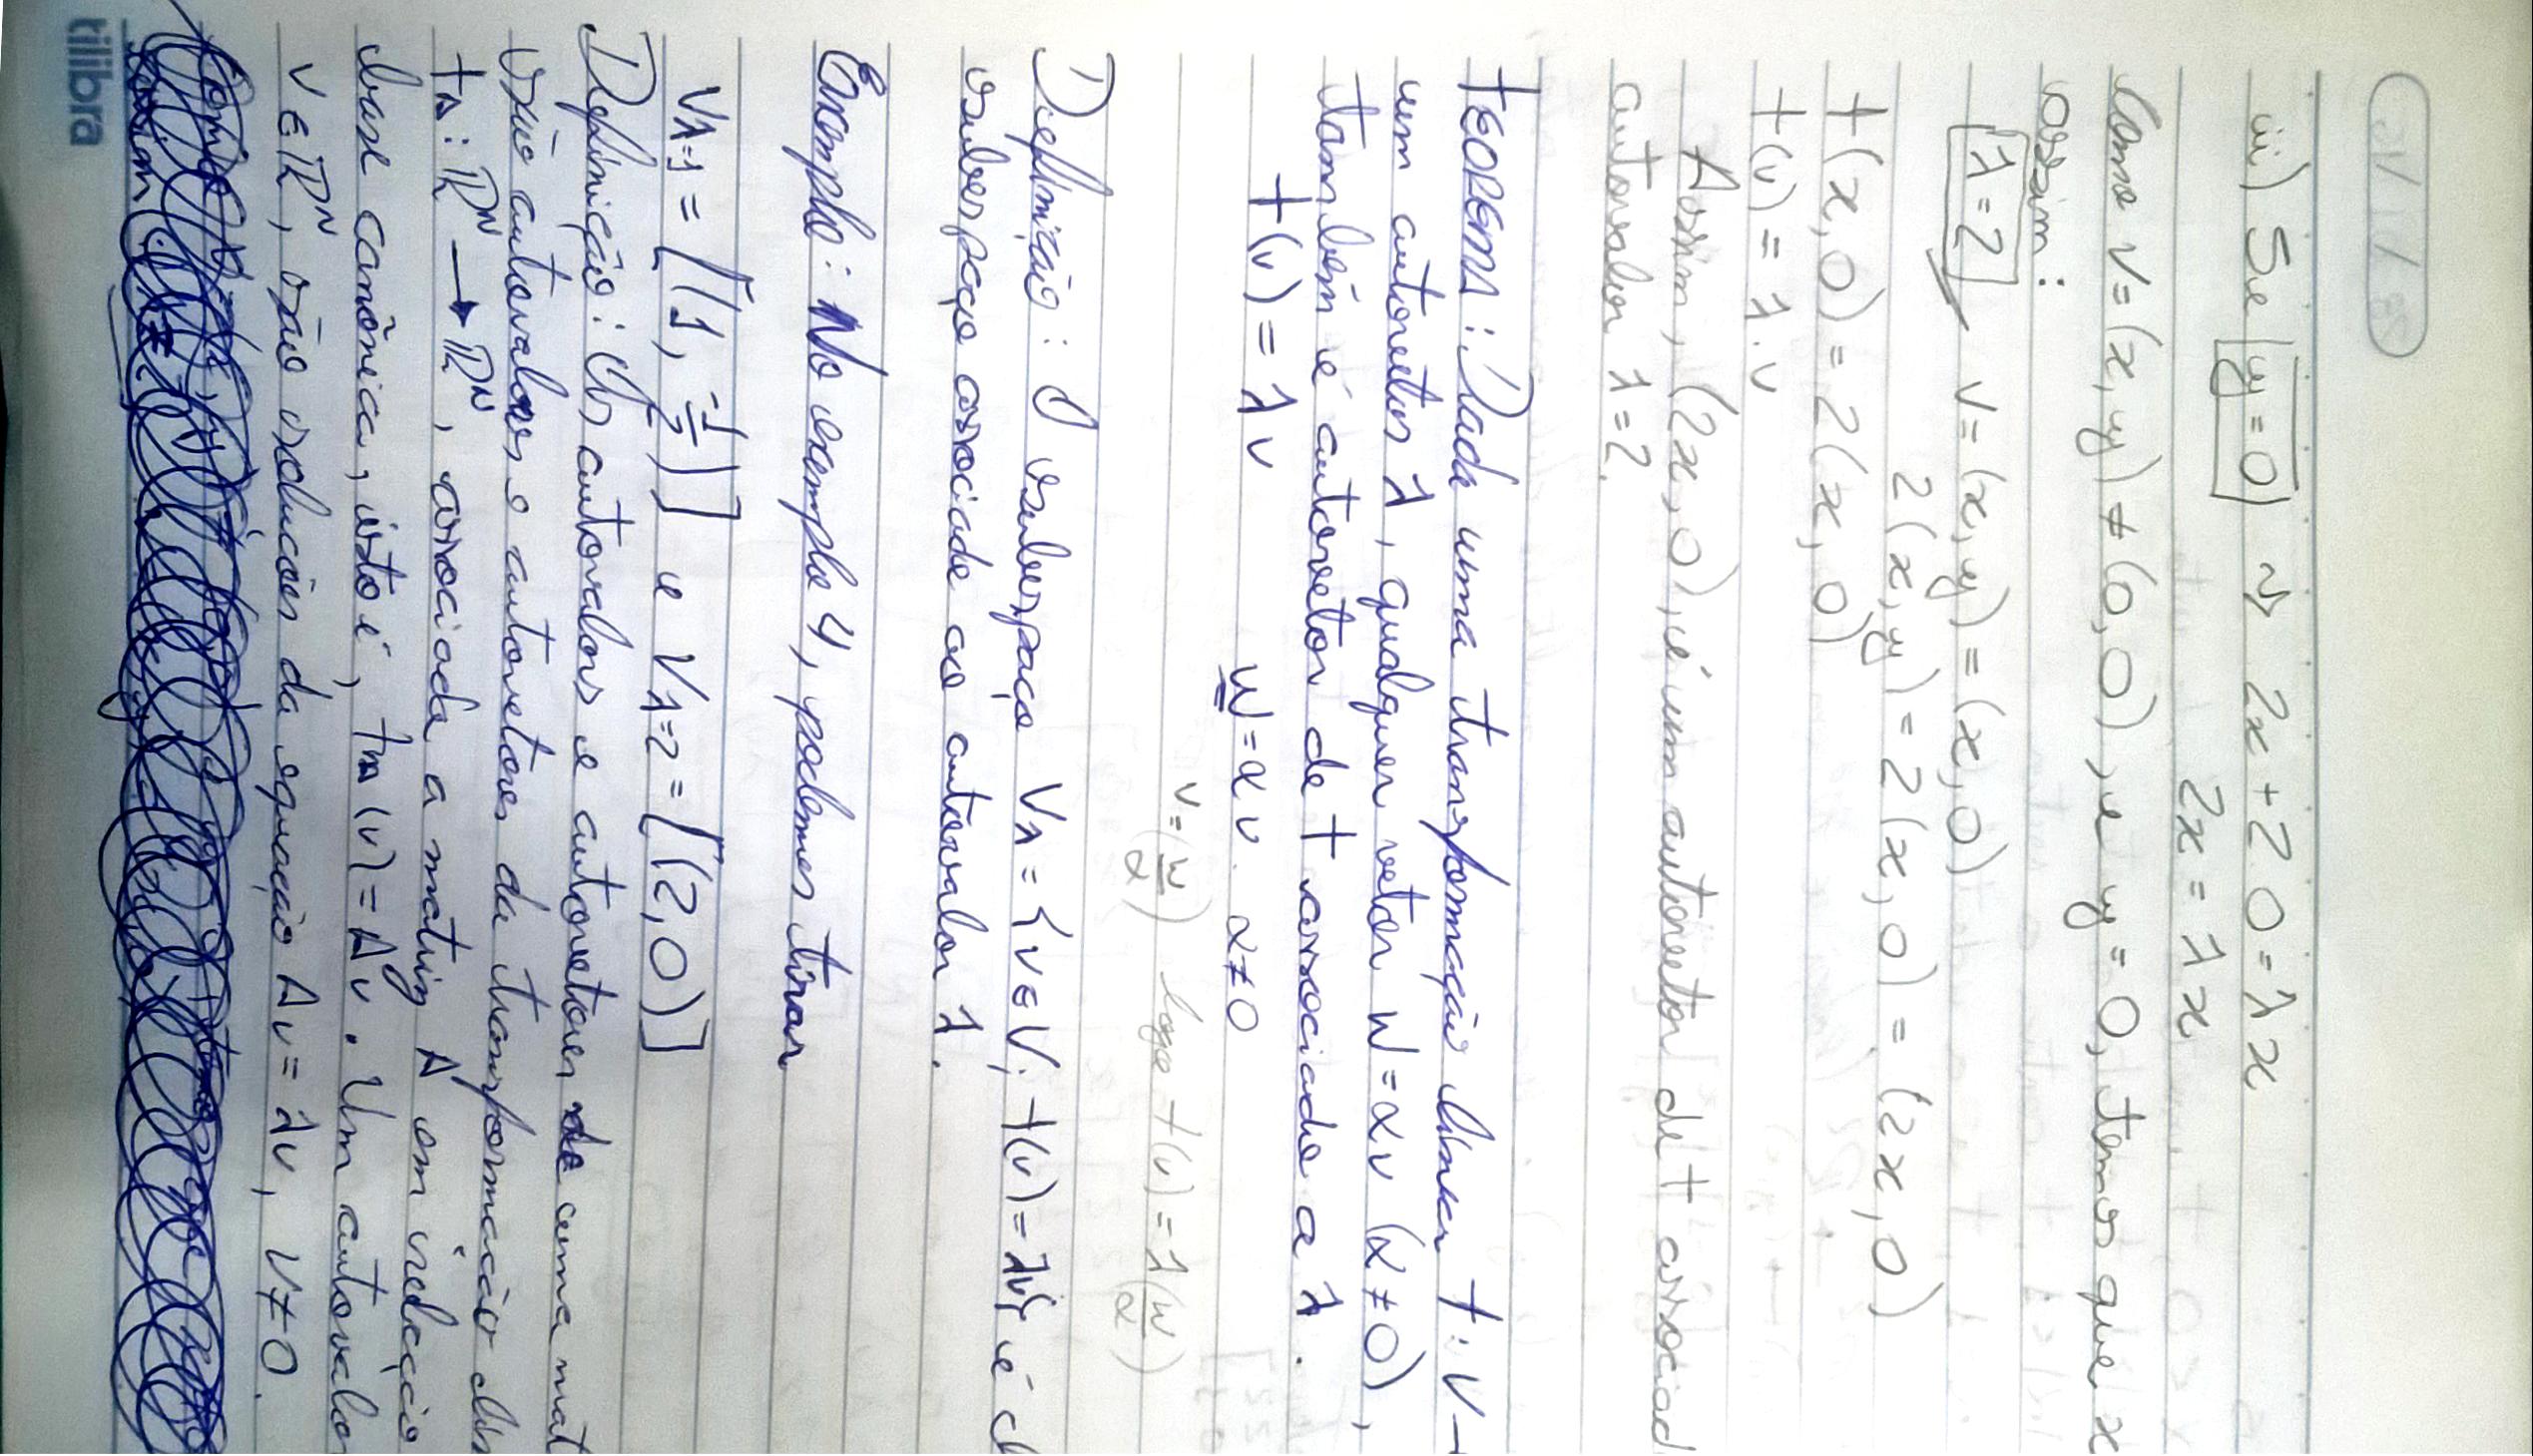 iii) Se y=0 → 2x+2.0=λx
2x = λx
Como v=(x,y)≠(0,0), e y=0, temos que x
assim:
λ=2 v=(x,y)=(x,0)
2(x,y)=2(x,0)=(2x,0)
T(x,0)=2(x,0)
T(v)=λ.v
Assim, (2x,0), é um autovetor de T associad
autovalor λ=2.
TEOREMA: Dada uma transformação linear T:V→
um autovetor λ, qualquer vetor W=αv (α≠0),
também é autovetor de T associado a λ.
T(v)=λv W=αv. α≠0
v=(w/α) logo T(v)=λ(w/α)
Definição: O subespaço Vλ={v∈V; T(v)=λv} é c
subespaço associado ao autovalor λ.
Exemplo: No exemplo 4, podemos tirar
Vλ=1=[(1,-1/2)] e Vλ=2=[(2,0)]
Definição: Os autovalores e autovetores de uma mat
são autovalores e autovetores da transformação lin
TA:ℝᴺ→ℝᴺ, associada a matriz A em relação
base canônica, isto é, TA(v)=Av. Um autovalo
v∈ℝᴺ, são soluções da equação Av=λv, V≠0.
tilibra